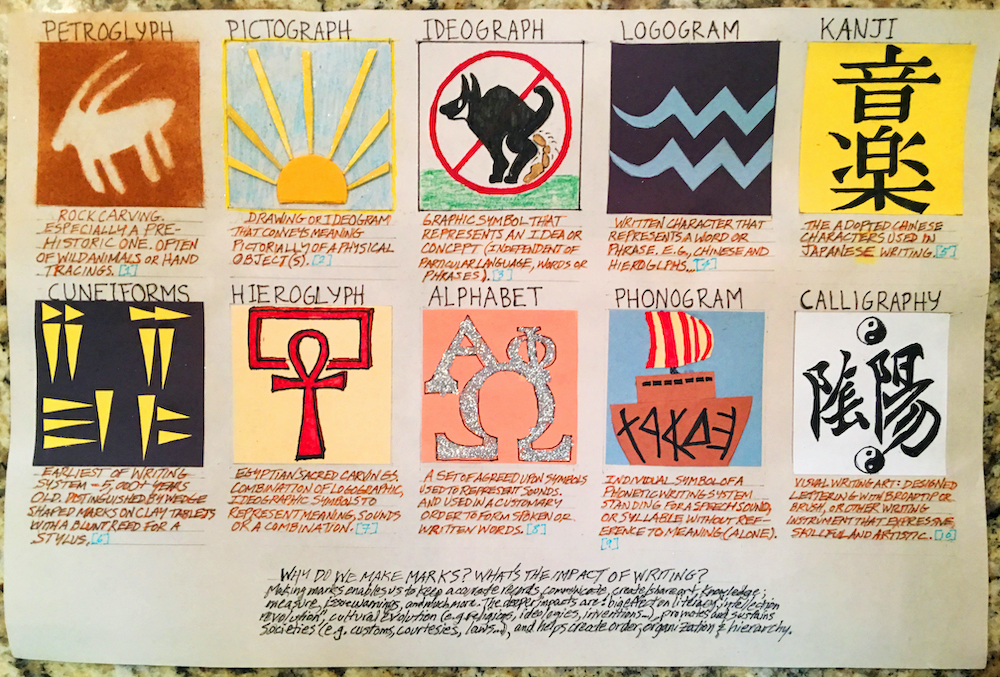 PETROGLYPH
ROCK CARVING.
ESPECIALLY A PRE-
HISTORIC ONE. OFTEN
OF WILD ANIMALS OR HAND
TRACINGS. [1]
PICTOGRAPH
DRAWING OR IDEOGRAM
THAT CONVEYS MEANING
PICTORIALLY OF A PHYSICAL
OBJECT(S). [2]
IDEOGRAPH
GRAPHIC SYMBOL THAT
REPRESENTS AN IDEA OR
CONCEPT (INDEPENDENT OF
PARTICULAR LANGUAGE, WORDS OR
PHRASES). [3]
LOGOGRAM
WRITTEN CHARACTER THAT
REPRESENTS A WORD OR
PHRASE. E.G., CHINESE AND
HIEROGLPHS. [4]
KANJI
音
楽
THE ADOPTED CHINESE
CHARACTERS USED IN
JAPANESE WRITING. [5]
CUNEIFORMS
EARLIEST OF WRITING
SYSTEM - 5,000+ YEARS
OLD. DISTINGUISHED BY WEDGE
SHAPED MARKS ON CLAY TABLETS
WITH A BLUNT REED FOR A
STYLUS. [6]
HIEROGLYPH
EGYPTIAN SACRED CARVINGS.
COMBINATION OF LOGOGRAPHIC,
IDEOGRAPHIC SYMBOLS TO
REPRESENT MEANING, SOUNDS
OR A COMBINATION. [7]
ALPHABET
Α Φ
Ω
A SET OF AGREED UPON SYMBOLS
USED TO REPRESENT SOUNDS,
AND USED IN A CUSTOMARY
ORDER TO FORM SPOKEN OR
WRITTEN WORDS. [8]
PHONOGRAM
INDIVIDUAL SYMBOL OF A
PHONETIC WRITING SYSTEM
STANDING FOR A SPEECH SOUND,
OR SYLLABLE WITHOUT REF-
ERENCE TO MEANING (ALONE).
[9]
CALLIGRAPHY
陰陽
VISUAL WRITING ART: DESIGNED
LETTERING WITH BROAD TIP OR
BRUSH, OR OTHER WRITING
INSTRUMENT THAT EXPRESSIVE,
SKILLFUL AND ARTISTIC. [10]
WHY DO WE MAKE MARKS? WHAT'S THE IMPACT OF WRITING?
Making marks enables us to keep accurate records, communicate, create/share art, knowledge;
measure, issue warnings, and much more. The deeper impacts are: big effect on literacy,
revolution, cultural evolution (e.g. religions, ideologies, inventions...), promotes and sustains
societies (e.g. customs, courtesies, laws...), and helps create order, organization & hierarchy.